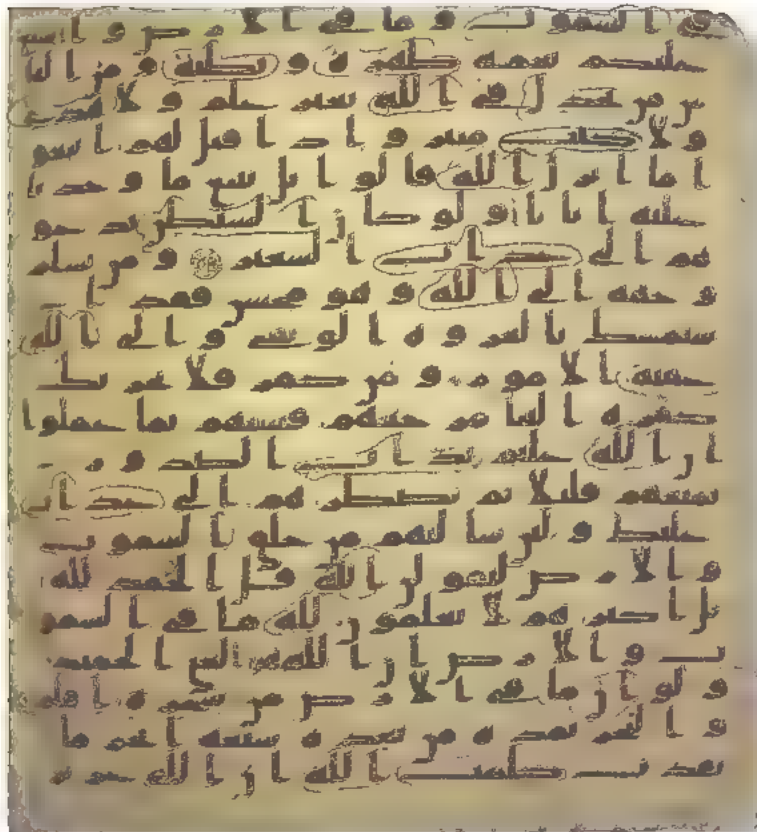 في السموت وما في الارض واسبغ
عليكم نعمه ظهرة وبطنة ومن النا
س من يجدل في الله بغير علم ولا هدى
ولا كتب منير واذا قيل لهم اتبعو
ا ما انزل الله قالوا بل نتبع ما وجدنا
عليه ابانا اولو كان الشيطن يدعو
هم الى عذاب السعير ومن يسلم
وجهه الى الله وهو محسن فقد ا
ستمسك بالعروة الوثقى والى الله
عقبة الامور ومن كفر فلا يحزنك
كفره الينا مرجعهم فننبئهم بما عملوا
ان الله عليم بذات الصدور
نمتعهم قليلا ثم نضطرهم الى عذاب
غليظ ولئن سالتهم من خلق السموت
والارض ليقولن الله قل الحمد لله
بل اكثرهم لا يعلمون لله ما في السمو
ت والارض ان الله هو الغني الحميد
ولو ان ما في الارض من شجرة اقلم
والبحر يمده من بعده سبعة ابحر ما
نفدت كلمت الله ان الله عزيز